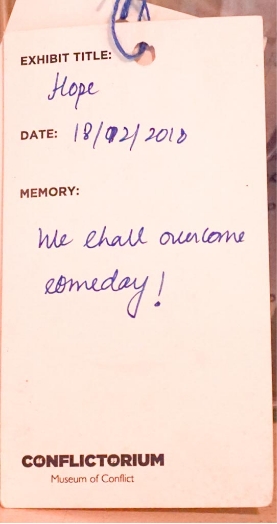 EXHIBIT TITLE:
Hope
DATE: 18/02/2018
MEMORY:
We shall overcome
someday!
CONFLICTORIUM
Museum of Conflict